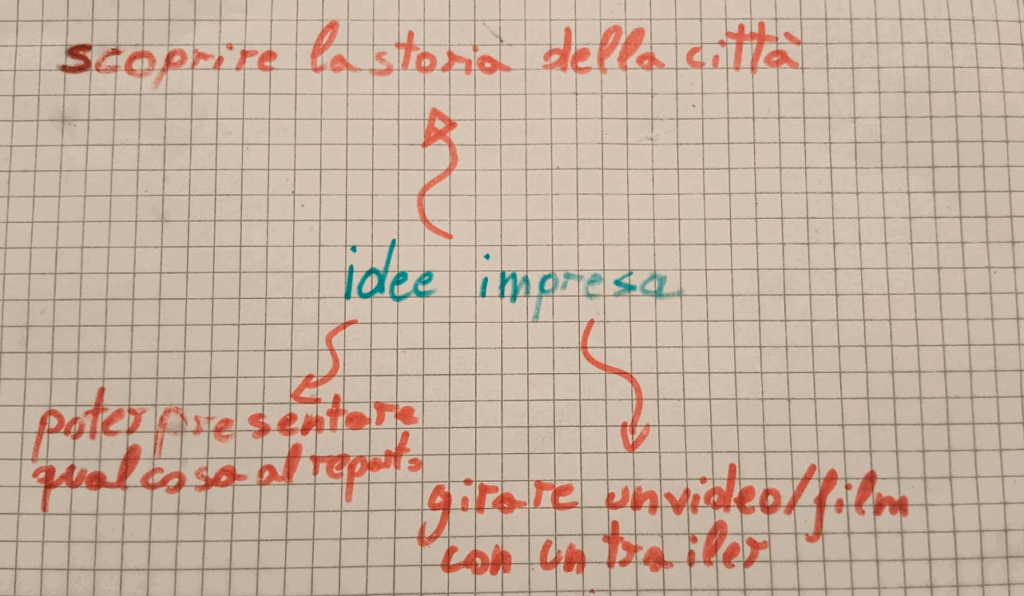 scoprire la storia della città
idee impresa
poter presentare
qualcosa al reparto
girare un video/film
con un trailer